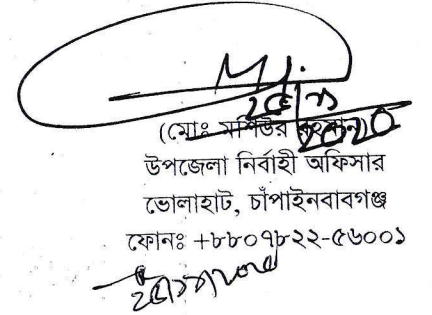 ২৫/১১
২০২০
(মোঃ মশিউর রহমান)
উপজেলা নির্বাহী অফিসার
ভোলাহাট, চাঁপাইনবাবগঞ্জ
ফোনঃ +৮৮০৭৮২২-৫৬০০১